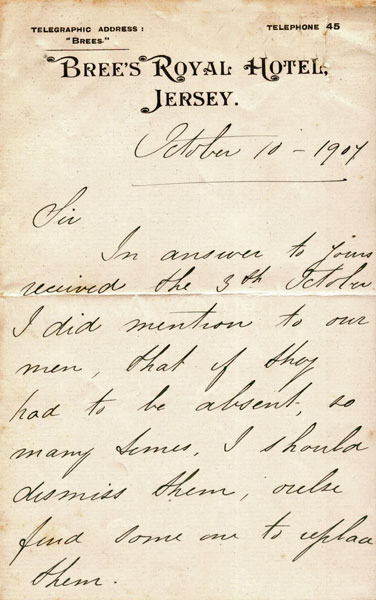 TELEGRAPHIC ADDRESS:
"BREES."
TELEPHONE 45
BREE'S ROYAL HOTEL,
JERSEY.
October 10 – 1907
Sir
In answer to yours
received the 3th October
I did mention to our
men, that if they
had to be absent, so
many times, I should
dismiss them, orelse
find some one to replace
them.